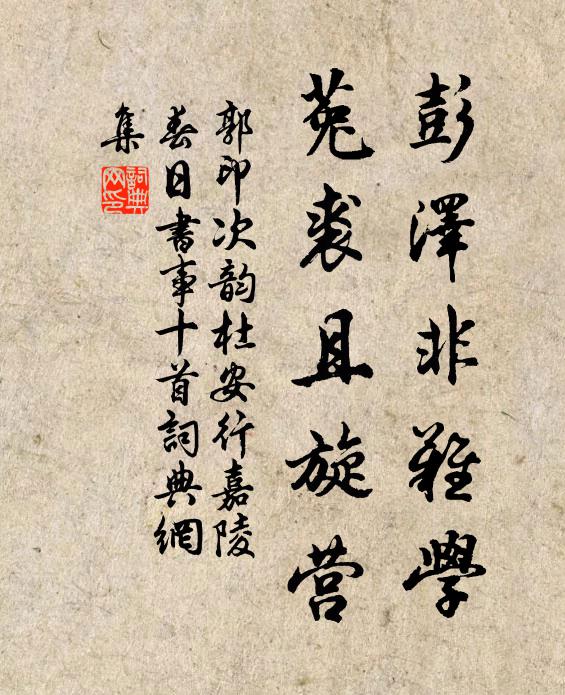 彭澤非難學
菟裘且旋营
郭印次韵杜安行嘉陵
春日書事十首詞典網
集
詞典網印